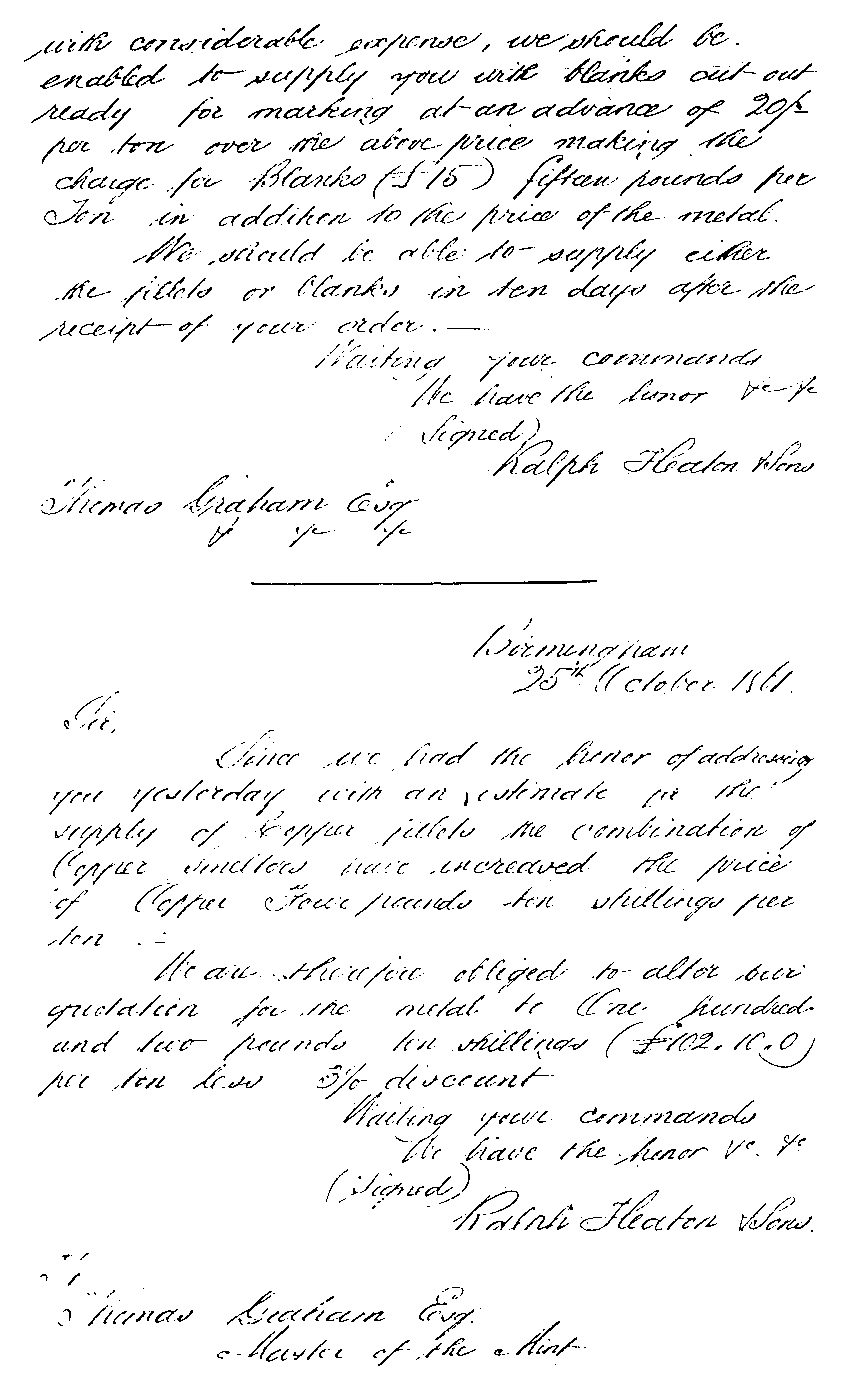 with considerable expense, we should be
enabled to supply you with blanks cut out
ready for marking at an advance of 20/-
per ton over the above price making the
charge for Blanks (£15) fifteen pounds per
Ton in addition to the price of the metal.
We should be able to supply either
the fillets or blanks in ten days after the
receipt of your order. —
Waiting your commands
We have the honor &c &c
(Signed)
Ralph Heaton & Sons
Thomas Graham Esq
&c &c &c
Birmingham
25th October 1861.
Sir,
Since we had the honor of addressing
you yesterday with an estimate for the
supply of Copper fillets the combination of
Copper smelters have increased the price
of Copper Four pounds ten shillings per
ton.
We are therefore obliged to alter our
quotation for the metal to One hundred
and two pounds ten shillings (£102.10.0)
per ton less 3% discount
Waiting your commands
We have the honor &c. &c
(Signed)
Ralph Heaton & Sons.
Thomas Graham Esq.
Master of the Mint